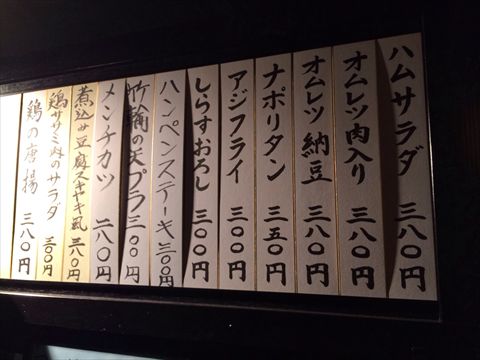 ハムサラダ 三八〇円
オムレツ肉入り 三八〇円
オムレツ納豆 三八〇円
ナポリタン 三五〇円
アジフライ 三〇〇円
しらすおろし 三〇〇円
ハンペンステーキ 三〇〇円
竹輪の天プラ 三〇〇円
メンチカツ 二八〇円
煮込み豆腐スキヤキ風 三八〇円
鶏ササミ肉のサラダ 三〇〇円
鶏の唐揚 三八〇円